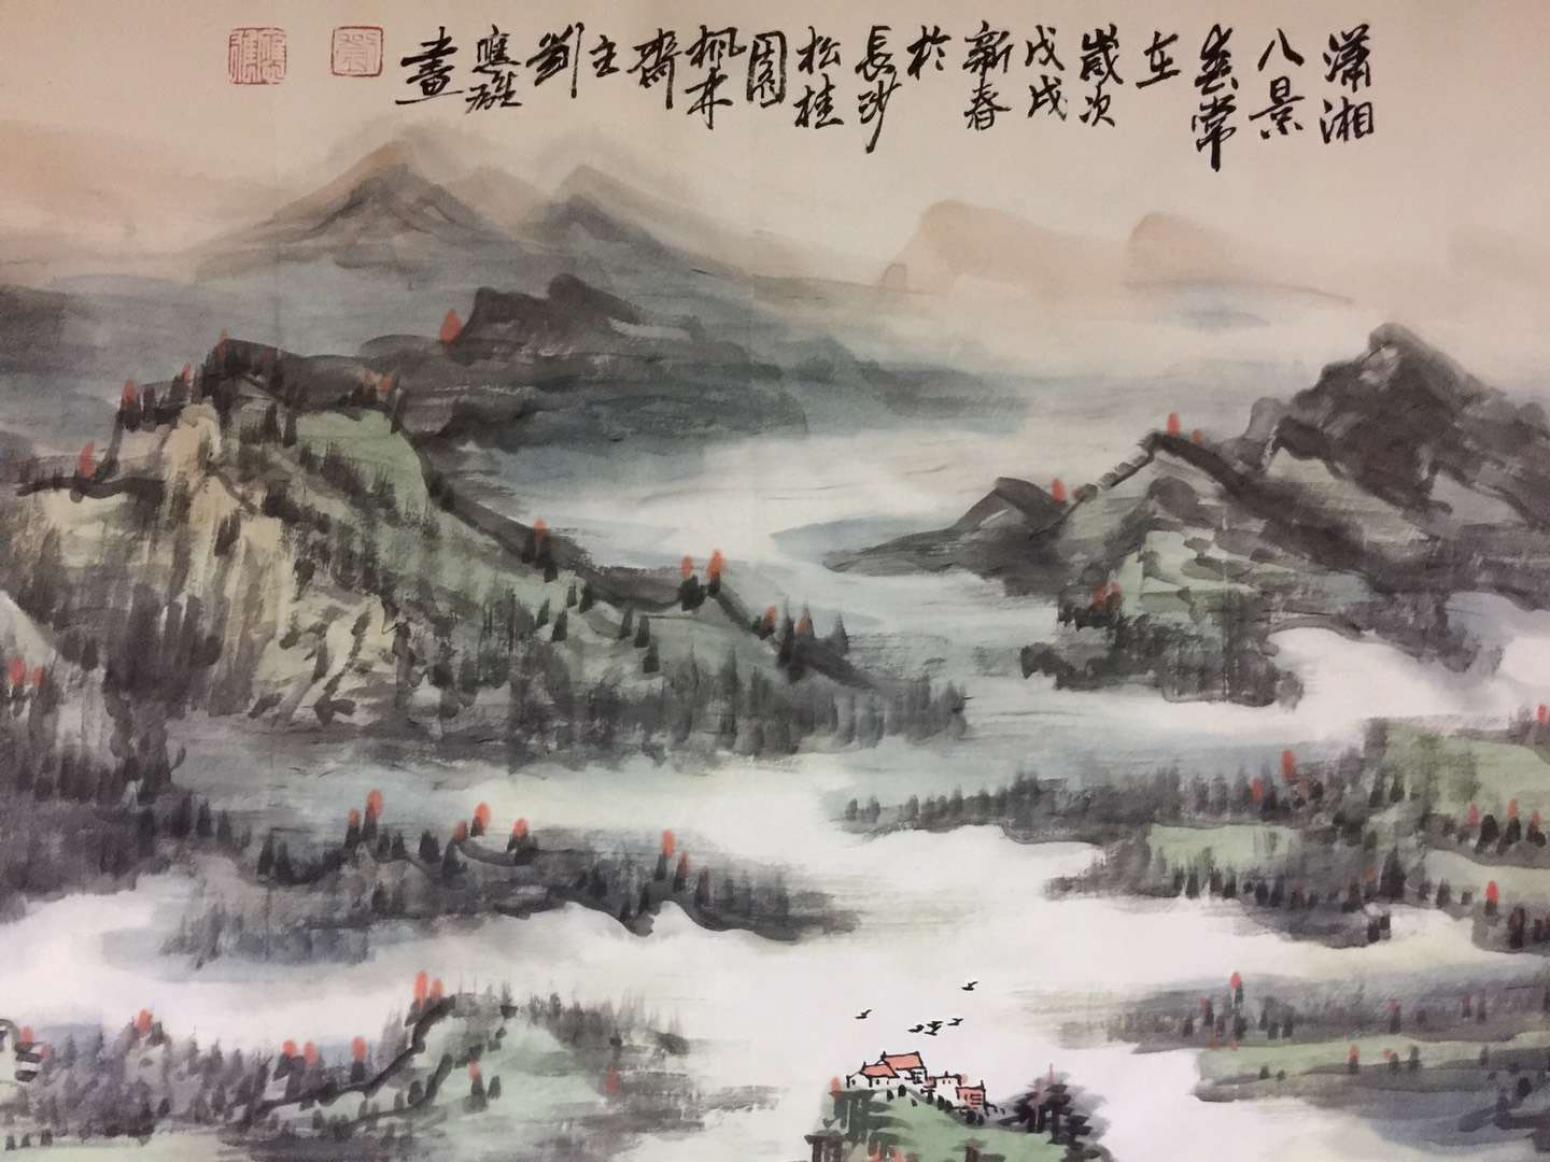 瀟湘
八景
常
在
歲次
戊戌
新春
於
長沙
松桂
園
楓林
齋
主
劉
應雄
畫